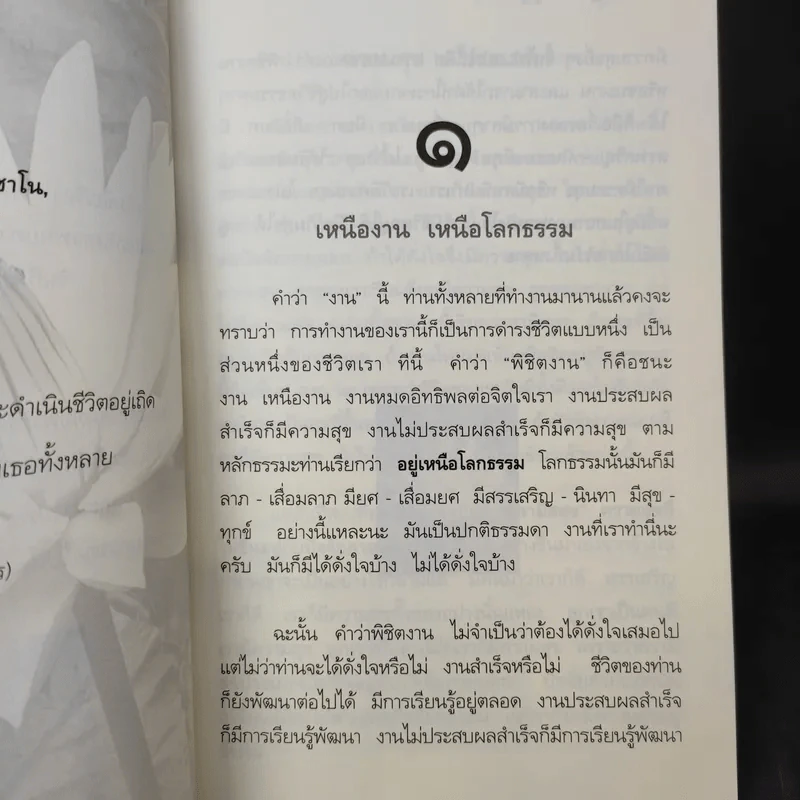 ชาโน,
ะดำเนินชีวิตอยู่เถิด
เธอทั้งหลาย
ร)
๑
เหนืองาน เหนือโลกธรรม
คำว่า “งาน” นี้ ท่านทั้งหลายที่ทำงานมานานแล้วคงจะ
ทราบว่า การทำงานของเรานี้ก็เป็นการดำรงชีวิตแบบหนึ่ง เป็น
ส่วนหนึ่งของชีวิตเรา ทีนี้ คำว่า “พิชิตงาน” ก็คือชนะ
งาน เหนืองาน งานหมดอิทธิพลต่อจิตใจเรา งานประสบผล
สำเร็จก็มีความสุข งานไม่ประสบผลสำเร็จก็มีความสุข ตาม
หลักธรรมะท่านเรียกว่า อยู่เหนือโลกธรรม โลกธรรมนั้นมันก็มี
ลาภ - เสื่อมลาภ มียศ - เสื่อมยศ มีสรรเสริญ - นินทา มีสุข -
ทุกข์ อย่างนี้แหละนะ มันเป็นปกติธรรมดา งานที่เราทำนี่นะ
ครับ มันก็มีได้ดั่งใจบ้าง ไม่ได้ดั่งใจบ้าง
ฉะนั้น คำว่าพิชิตงาน ไม่จำเป็นว่าต้องได้ดั่งใจเสมอไป
แต่ไม่ว่าท่านจะได้ดั่งใจหรือไม่ งานสำเร็จหรือไม่ ชีวิตของท่าน
ก็ยังพัฒนาต่อไปได้ มีการเรียนรู้อยู่ตลอด งานประสบผลสำเร็จ
ก็มีการเรียนรู้พัฒนา งานไม่ประสบผลสำเร็จก็มีการเรียนรู้พัฒนา